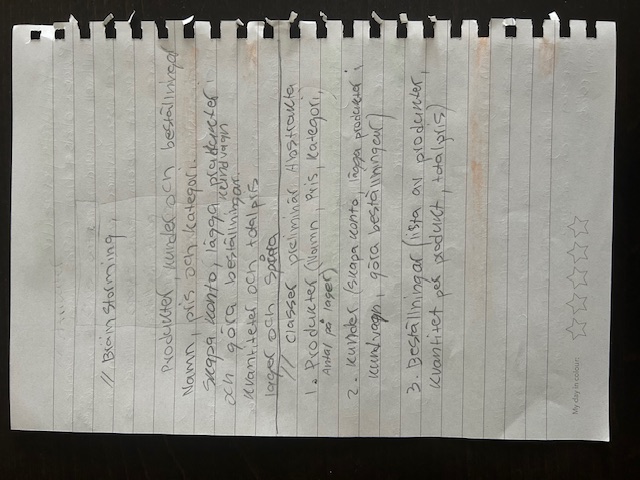 // Brainstorming
Produkter, kunder och beställningar
Namn, pris och kategori.
skapa konto, lägga produkter i
kundvagn
och göra beställningar.
kvantiteter och totalpris
lager och spåra
// Classer preliminär Abstrakta
1. Produkter (Namn, Pris, Kategori,
Antal på lager)
2. Kunder (skapa konto, lägga produkter i
kundvagn, göra beställningar)
3. Beställningar (lista av produkter,
kvantitet per produkt, totalpris)
My day in colour: